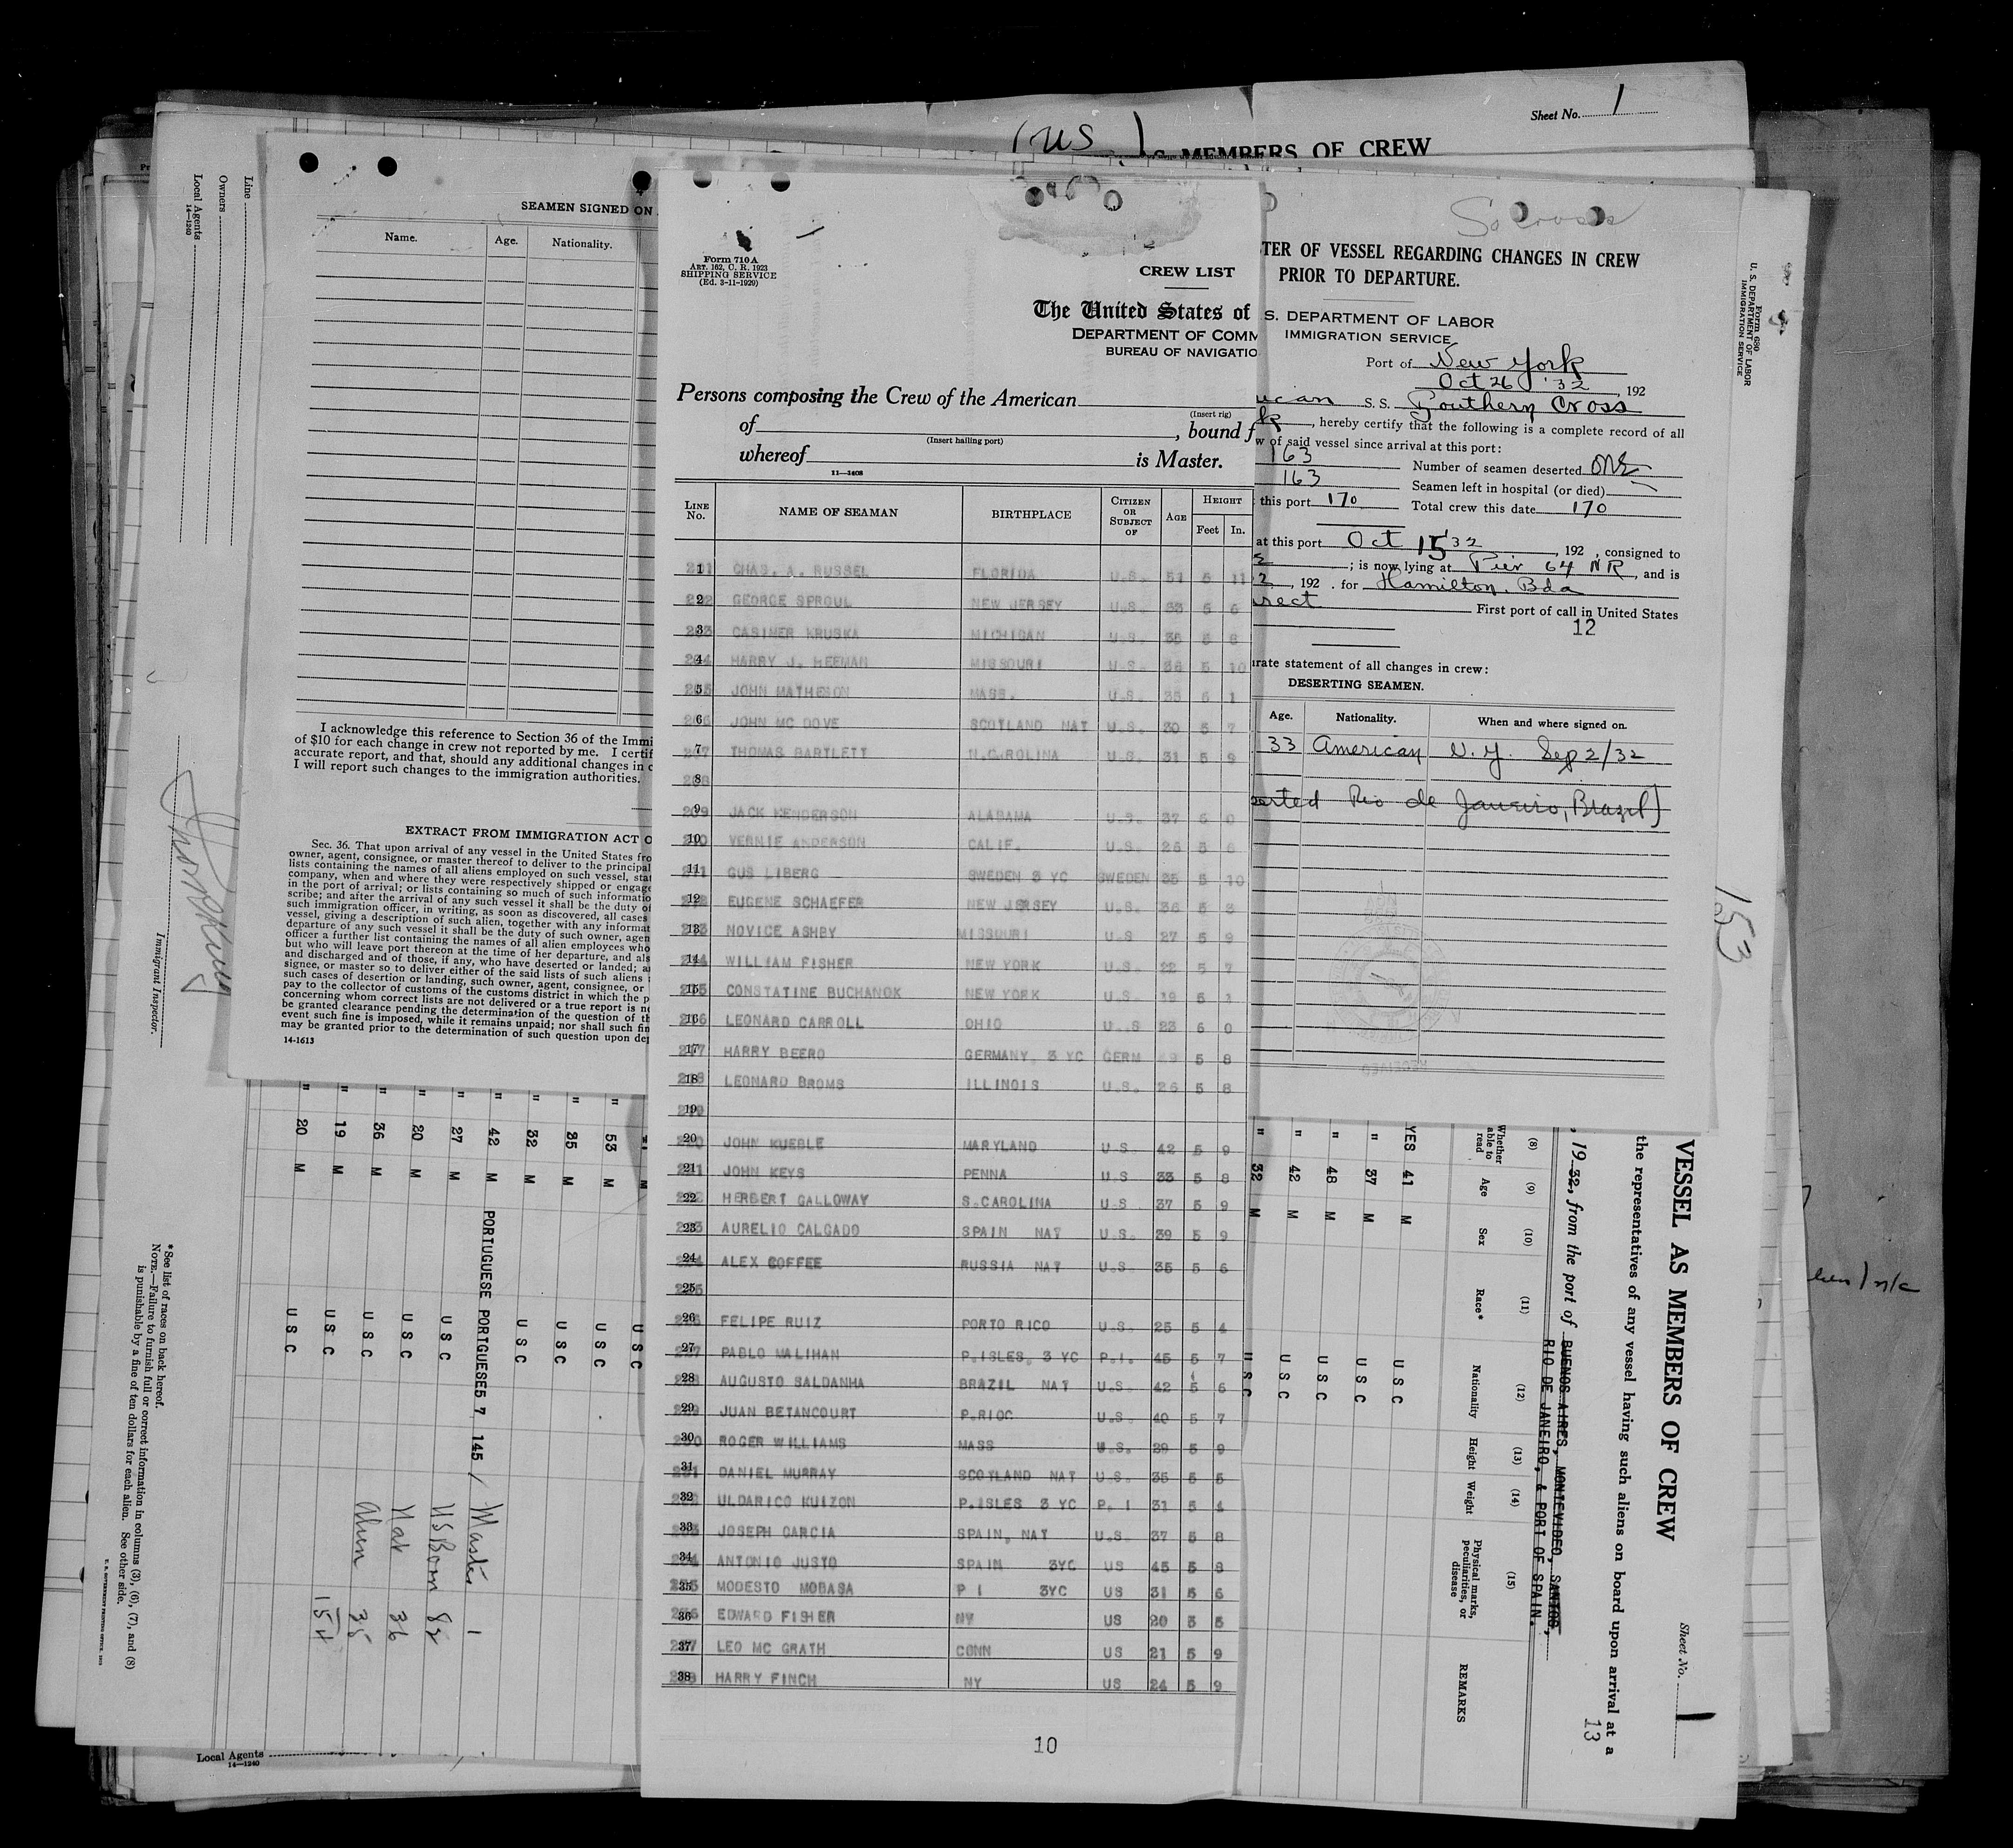 Sheet No. 1
(US)
MEMBERS OF CREW
Line
Owners
Local Agents
14—1240
SEAMEN SIGNED ON
Name. Age. Nationality.
I acknowledge this reference to Section 36 of the Immi
of $10 for each change in crew not reported by me. I certif
accurate report, and that, should any additional changes in c
I will report such changes to the immigration authorities.
EXTRACT FROM IMMIGRATION ACT O
Sec. 36. That upon arrival of any vessel in the United States fro
owner, agent, consignee, or master thereof to deliver to the principal
lists containing the names of all aliens employed on such vessel, stat
company, when and where they were respectively shipped or engage
in the port of arrival; or lists containing so much of such informatio
scribe; and after the arrival of any such vessel it shall be the duty of
such immigration officer, in writing, as soon as discovered, all cases
vessel, giving a description of such alien, together with any informat
departure of any such vessel it shall be the duty of such owner, agen
officer a further list containing the names of all alien employees who
but who will leave port thereon at the time of her departure, and als
and discharged and of those, if any, who have deserted or landed; a
signee, or master so to deliver either of the said lists of such aliens
such cases of desertion or landing, such owner, agent, consignee, or
pay to the collector of customs of the customs district in which the p
concerning whom correct lists are not delivered or a true report is no
be granted clearance pending the determination of the question of th
event such fine is imposed, while it remains unpaid; nor shall such fin
may be granted prior to the determination of such question upon dep
14-1613
Immigrant Inspector.
Form 710 A
ART. 162, C. R. 1923
SHIPPING SERVICE
(Ed. 3-11-1929)
CREW LIST
The United States of
DEPARTMENT OF COMM
BUREAU OF NAVIGATIO
Persons composing the Crew of the American
(Insert rig)
of , bound f
(Insert hailing port)
whereof is Master.
11—1408
LINE No. NAME OF SEAMAN BIRTHPLACE CITIZEN OR SUBJECT OF AGE HEIGHT Feet In.
1 CHAS. A. RUSSEL FLORIDA U.S. 51 5 11
2 GEORGE SPROUL NEW JERSEY U.S. 33 5 6
3 CASIMER KRUSKA MICHIGAN U.S. 36 5 8
4 HARRY J. HEEMAN MISSOURI U.S. 26 5 10
5 JOHN MATHESON MASS. U.S. 35 5 1
6 JOHN MC DOVE SCOTLAND NAT U.S. 30 5 7
7 THOMAS BARTLETT N.CAROLINA U.S. 31 5 9
8
9 JACK HENDERSON ALABAMA U.S. 37 6 0
10 VERNIE ANDERSON CALIF. U.S. 26 5 6
11 GUS LIBERG SWEDEN 3 YC SWEDEN 25 5 10
12 EUGENE SCHAEFER NEW JERSEY U.S. 36 5 3
13 NOVICE ASHBY MISSOURI U.S 27 5 9
14 WILLIAM FISHER NEW YORK U.S. 22 5 7
15 CONSTATINE BUCHANOK NEW YORK U.S. 19 5 1
16 LEONARD CARROLL OHIO U.S 23 6 0
17 HARRY BEERO GERMANY, 3 YC GERM 5 8
18 LEONARD BROMS ILLINOIS U.S. 26 5 8
19
20 JOHN KUEBLE MARYLAND U.S 42 5 9
21 JOHN KEYS PENNA U.S 33 5 8
22 HERBERT GALLOWAY S.CAROLINA U.S 37 5 9
23 AURELIO CALGADO SPAIN NAT U.S. 39 5 9
24 ALEX COFFEE RUSSIA NAT U.S. 35 5 6
25
26 FELIPE RUIZ PORTO RICO U.S. 25 5 4
27 PABLO MALIHAN P.ISLES, 3 YC P.I. 45 5 7
28 AUGUSTO SALDANHA BRAZIL NAT U.S. 42 5 6
29 JUAN BETANCOURT P.RIOC U.S. 40 5 7
30 ROGER WILLIAMS MASS U.S. 29 5 9
31 DANIEL MURRAY SCOTLAND NAT U.S. 35 5 5
32 ULDARICO KUIZON P.ISLES 3 YC P. I 31 5 4
33 JOSEPH GARCIA SPAIN, NAT U.S. 37 5 8
34 ANTONIO JUSTO SPAIN 3YC US 45 5 8
35 MODESTO MOBASA P I 3YC US 31 5 6
36 EDWARD FISHER NY US 20 5 5
37 LEO MC GRATH CONN US 21 5 9
38 HARRY FINCH NY US 24 5 9
10
So Cross
TER OF VESSEL REGARDING CHANGES IN CREW
PRIOR TO DEPARTURE.
S. DEPARTMENT OF LABOR
IMMIGRATION SERVICE
Port of New York
Oct 26 '32, 192
ican S. S. Southern Cross
k, hereby certify that the following is a complete record of all
w of said vessel since arrival at this port:
163 Number of seamen deserted one
163 Seamen left in hospital (or died)
this port 170 Total crew this date 170
at this port Oct 15 '32, 192 , consigned to
; is now lying at Pier 64 NR, and is
2, 192 . for Hamilton, Bda
irect First port of call in United States
12
urate statement of all changes in crew:
DESERTING SEAMEN.
Age. Nationality. When and where signed on.
33 American N.Y. Sep 2/32
serted Rio de Janeiro, Brazil]
RECEIVED
Form 680
U. S. DEPARTMENT OF LABOR
IMMIGRATION SERVICE
153
VESSEL AS MEMBERS OF CREW
Sheet No. 1
the representatives of any vessel having such aliens on board upon arrival at a
13
, 19 32, from the port of BUENOS AIRES, MONTEVIDEO, SANTOS,
RIO DE JANEIRO, & PORT OF SPAIN.
(8) (9) (10) (11) (12) (13) (14) (15)
Whether able to read Age Sex Race* Nationality Height Weight Physical marks, peculiarities, or disease REMARKS
YES 41 M U S C
" 37 M U S C
" 48 M U S C
" 42 M U S C
" 32 M U S C
" 53 M U S C
" 35 M U S C
" 32 M U S C
" 42 M PORTUGUESE PORTIGUESE5 7 145 / Master 1
" 27 M U S C US Born 82
" 20 M U S C Nat 36
" 36 M U S C Alien 35
" 19 M U S C 154
" 20 M U S C
*See list of races on back hereof.
NOTE.—Failure to furnish full or correct information in columns (3), (6), (7), and (8)
is punishable by a fine of ten dollars for each alien. See other side.
U. S. GOVERNMENT PRINTING OFFICE
Local Agents
14—1240